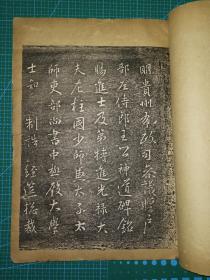 明貴州布政司參議贈戶
部左侍郎王公神道碑銘
賜進士及第特進光祿大
夫左柱國少師兼太子太
師吏部尚書中極殿大學
士知 制誥 經筵總裁